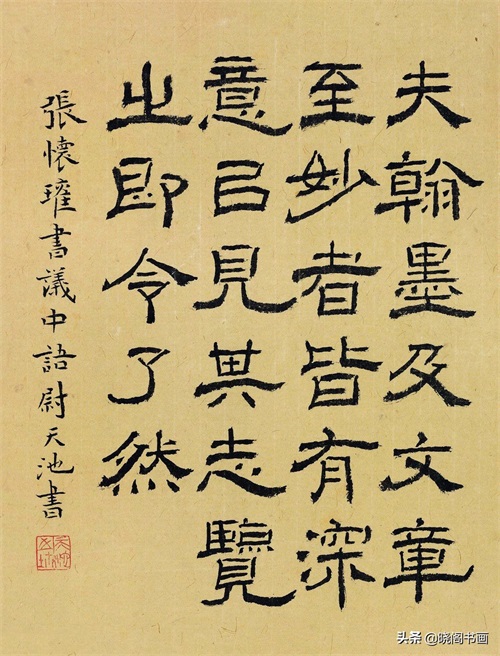 夫翰墨及文章
至妙者皆有深
意以見其志覽
之即令了然
張懷瓘書議中語尉天池書
头条 @晓阁书画